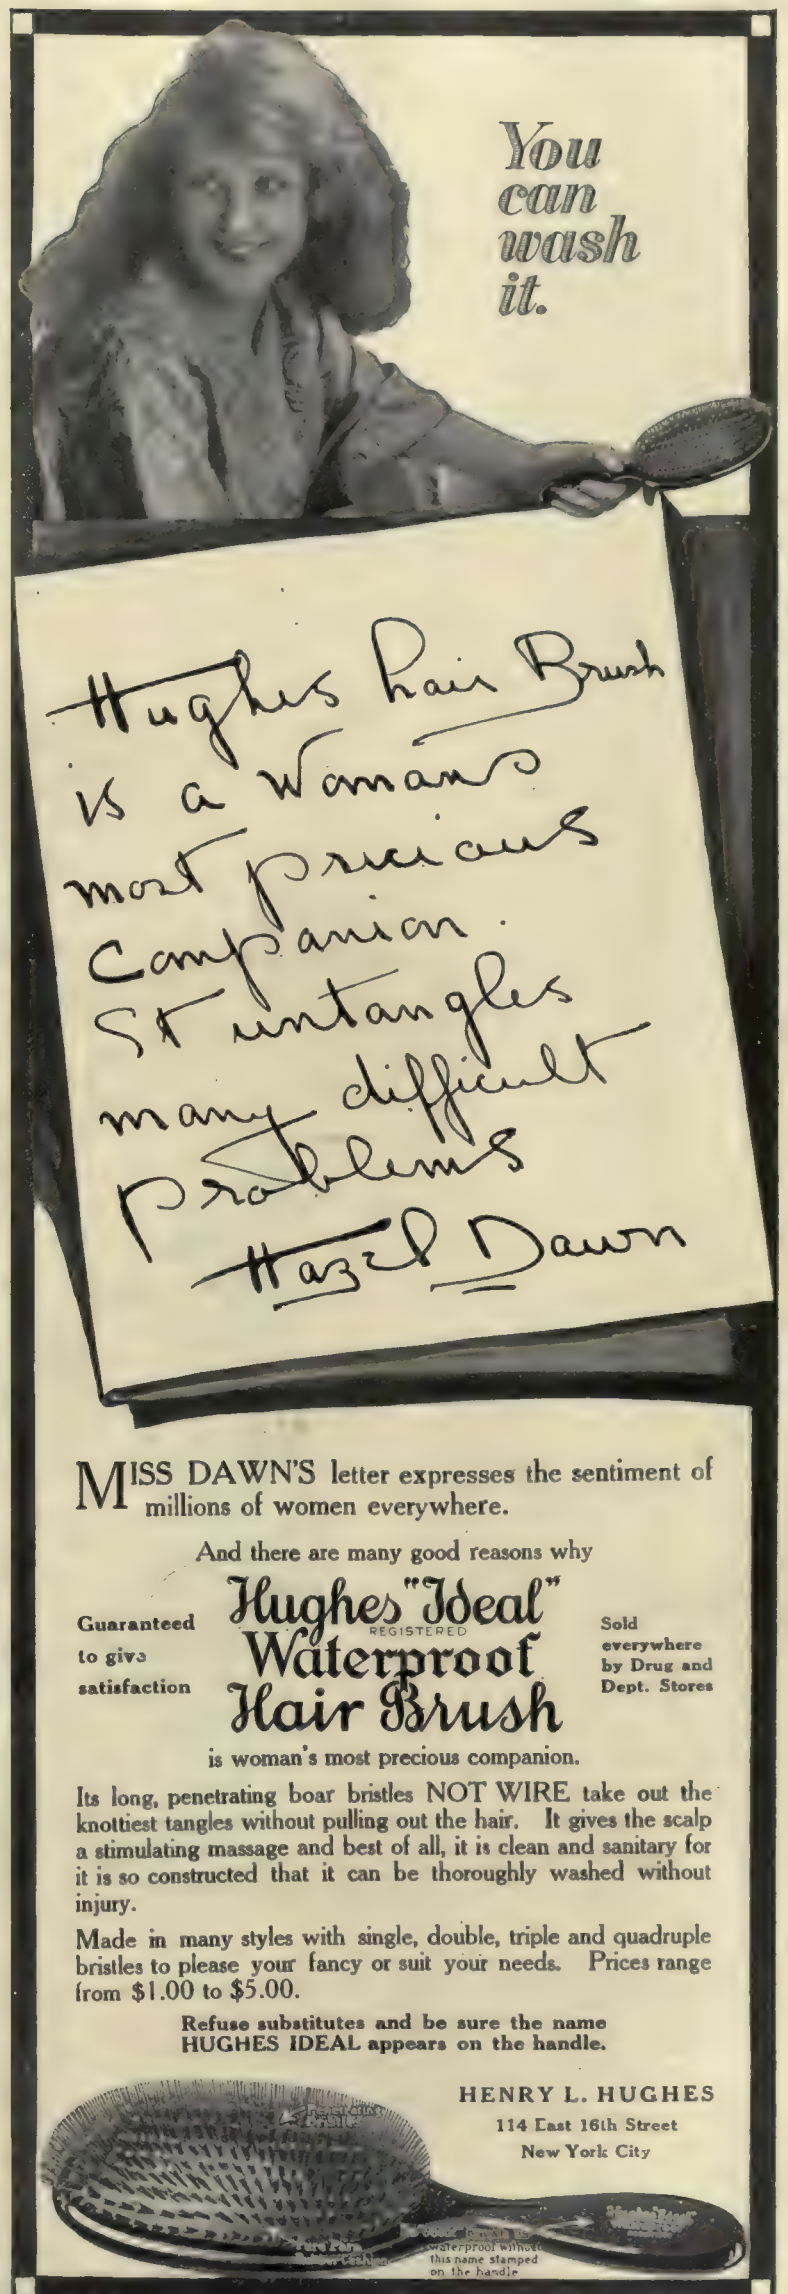 You
can
wash
it.
Hughes hair Brush
is a woman's
most precious
Companion.
It untangles
many difficult
problems
Hazel Dawn
MISS DAWN'S letter expresses the sentiment of
millions of women everywhere.
And there are many good reasons why
Guaranteed
to give
satisfaction
Hughes "Ideal"
REGISTERED
Waterproof
Hair Brush
Sold
everywhere
by Drug and
Dept. Stores
is woman's most precious companion.
Its long, penetrating boar bristles NOT WIRE take out the
knottiest tangles without pulling out the hair. It gives the scalp
a stimulating massage and best of all, it is clean and sanitary for
it is so constructed that it can be thoroughly washed without
injury.
Made in many styles with single, double, triple and quadruple
bristles to please your fancy or suit your needs. Prices range
from $1.00 to $5.00.
Refuse substitutes and be sure the name
HUGHES IDEAL appears on the handle.
HENRY L. HUGHES
114 East 16th Street
New York City
Penetrating
Bristles
Pure Para
Rubber Cushion
waterproof without
this name stamped
on the handle